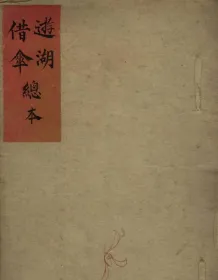 遊湖
借傘
總本